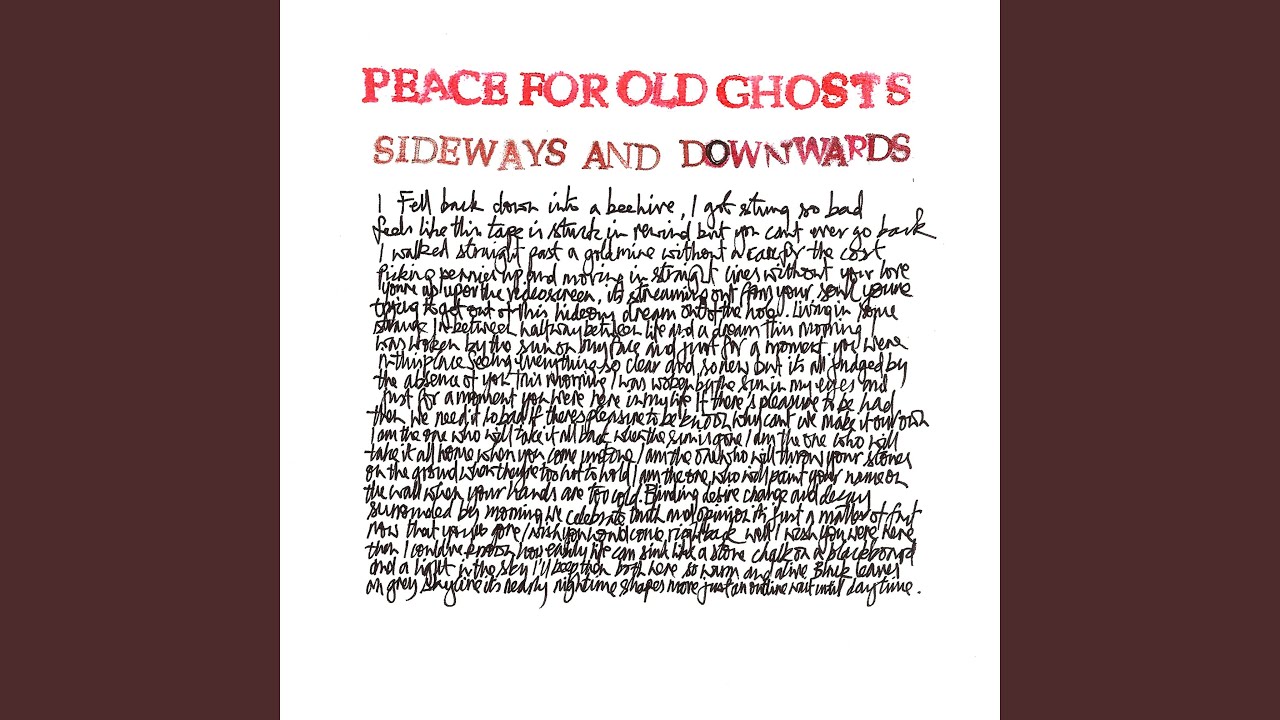 PEACE FOR OLD GHOSTS
SIDEWAYS AND DOWNWARDS
I Fell back down into a beehive, I got stung so bad
feels like this tape is stuck in rewind but you cant ever go back
I walked straight past a goldmine without a care for the cost
picking pennies up and moving in straight lines without your love
youre up upon the videoscreen, its streaming out from your soul youre
trying to get out of this hideous dream out of the hole. Living in some
strange in-between halfway between life and a dream this morning I
was woken by the sun on my face and just for a moment you were
in this place feeling everything so clear and so new but its all judged by
the absence of you This morning I was woken by the sun in my eyes and
just for a moment you were here in my life If there's pleasure to be had
then we need it so bad if theres pleasure to be known why cant we make it our own
I am the one who will take it all back when the sun is gone I am the one who will
take it all home when you come undone I am the one who will throw your stones
on the ground when theyre too hot to hold I am the one who will paint your name on
the wall when your hands are too cold. Blinding desire change and decay
surrounded by morning we celebrate truth and opinion its just a matter of fact
now that youre gone I wish you would come right back well I wish you were here
then I couldve known how easily life can sink like a stone chalk on a blackboard
and a light in the sky I'll keep them both here so warm and alive Black leaves
on grey skyline its nearly nightime shapes more just an outline wait until daytime.